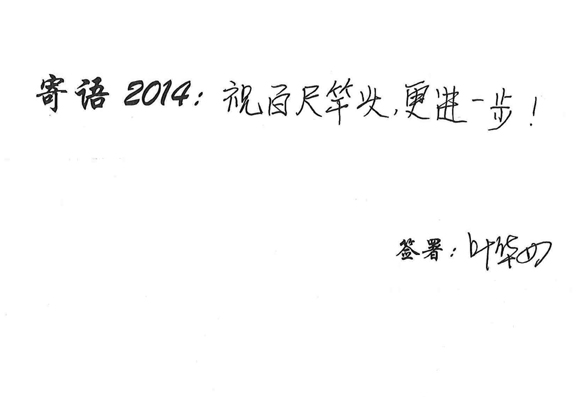 寄语 2014：祝百尺竿头,更进一步！
签署：叶华